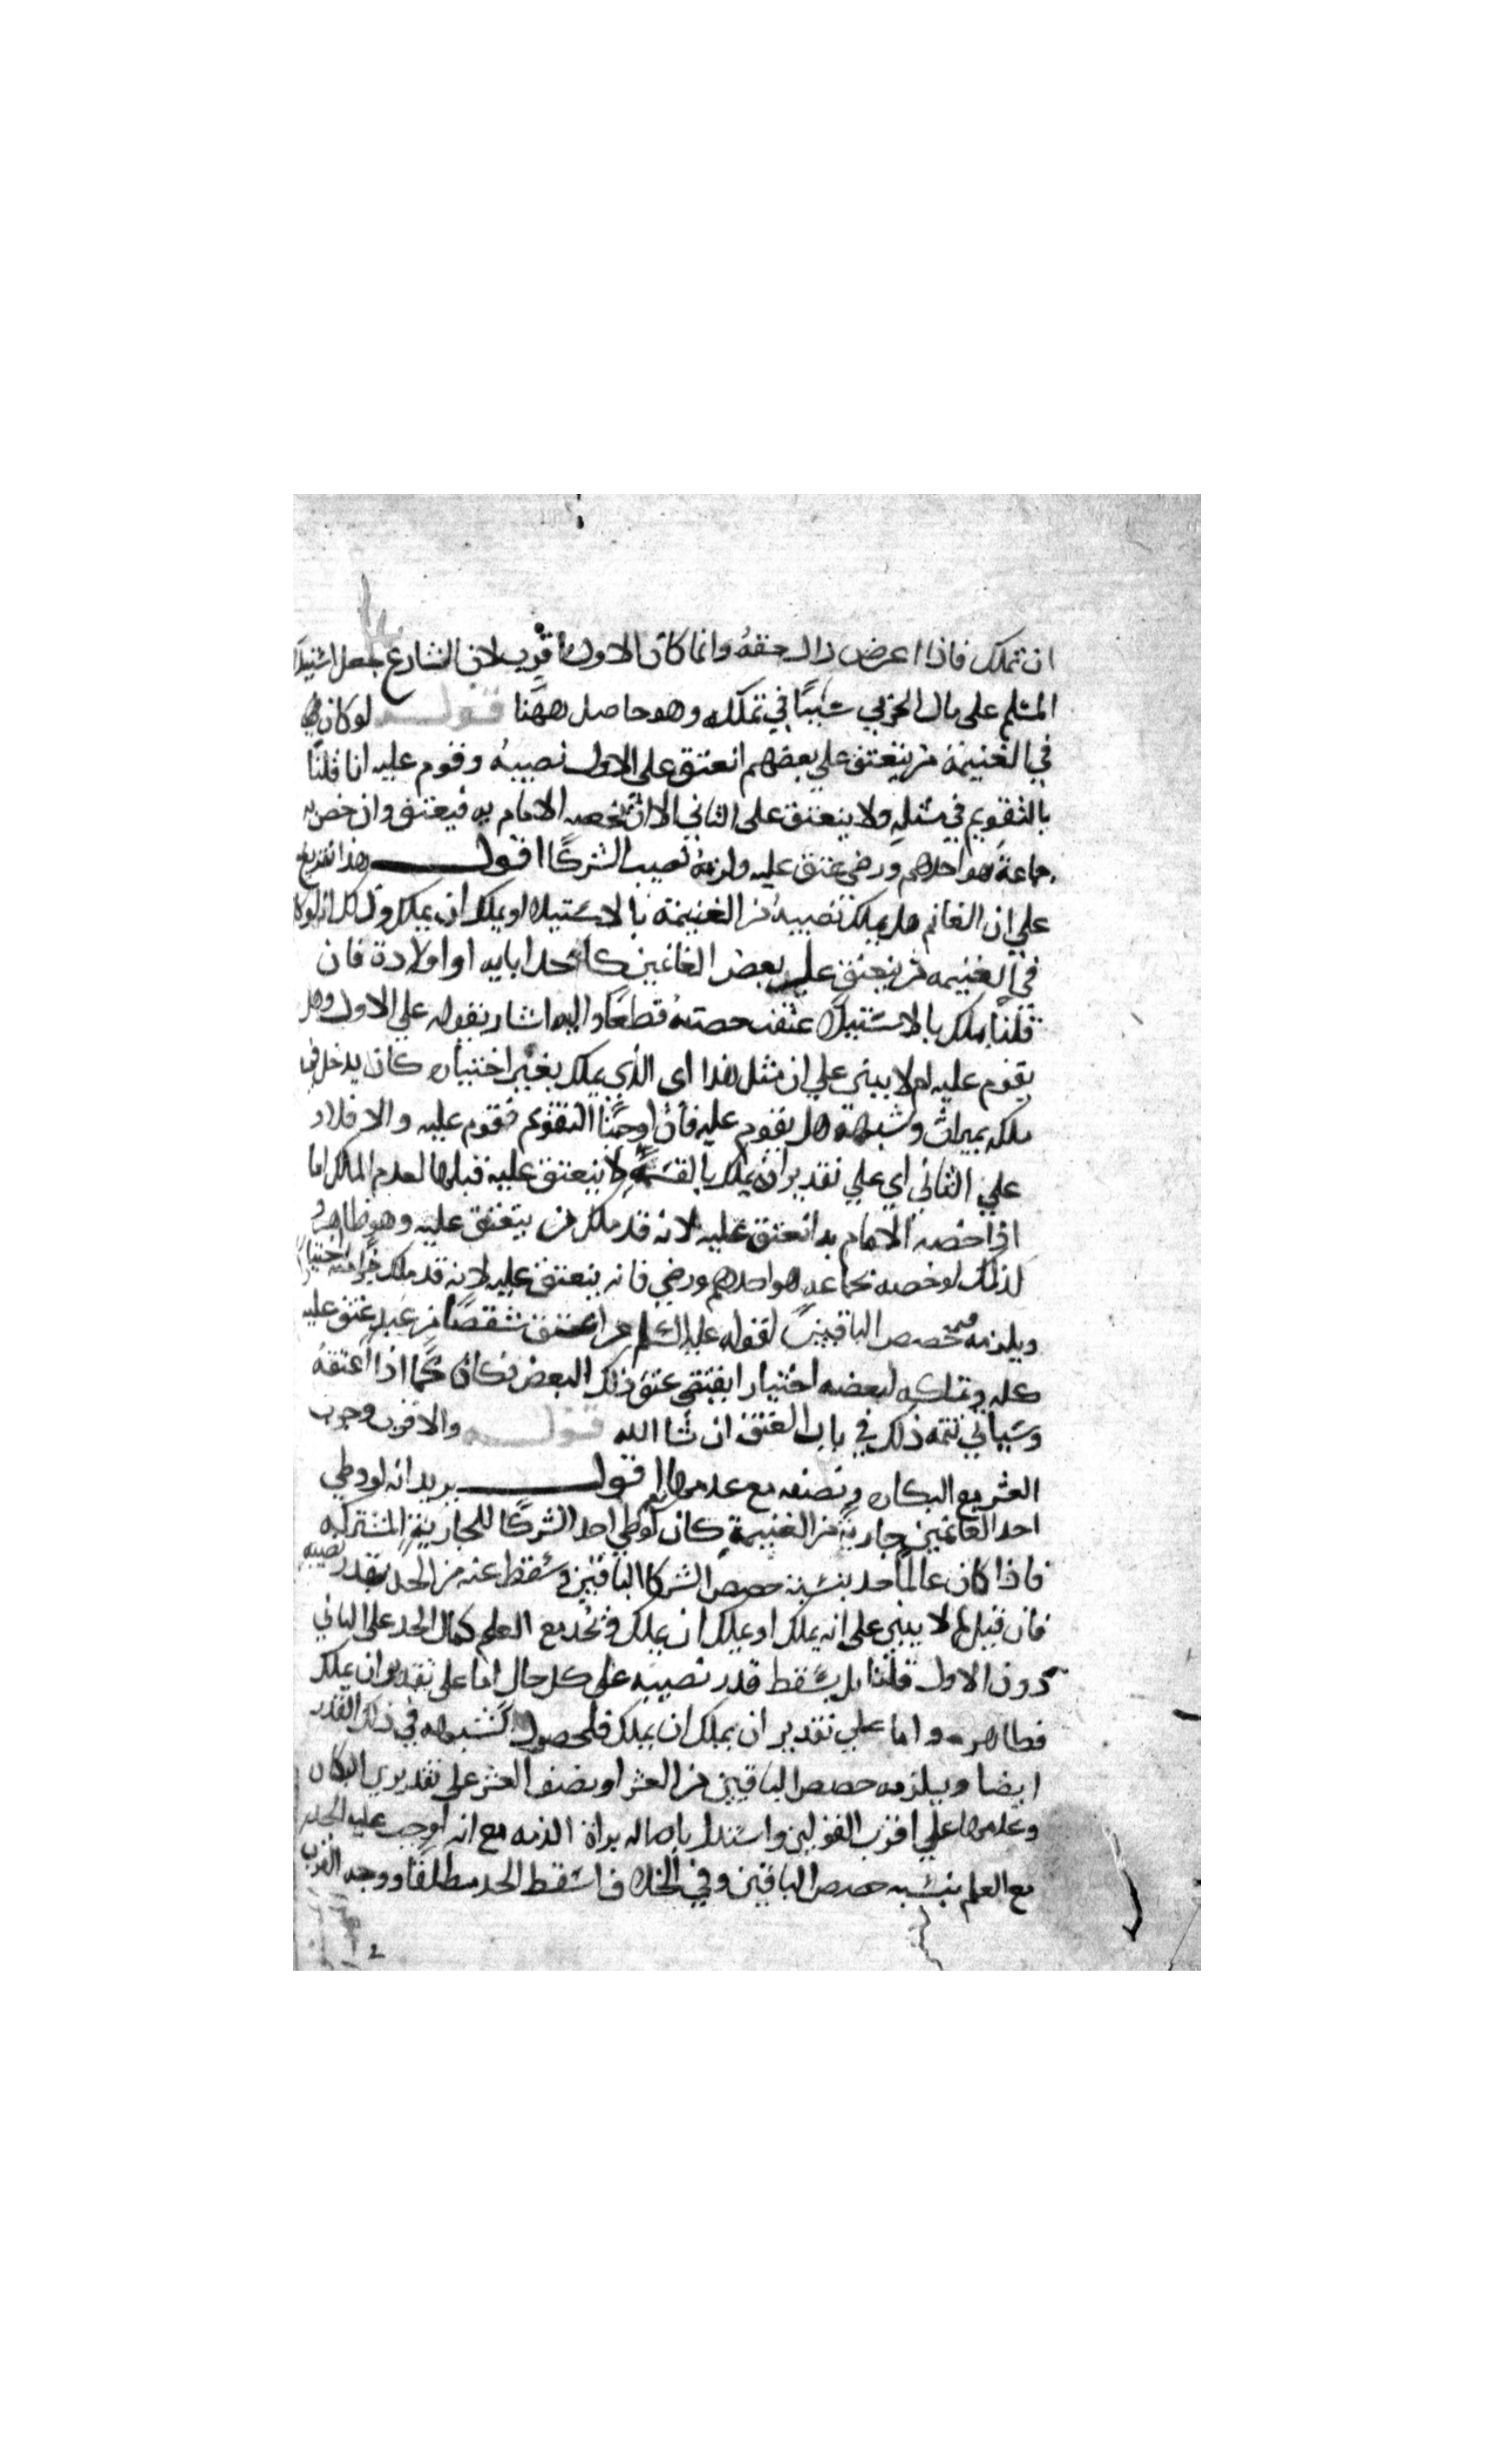 ان تملك فاذا اعرض زال حقه وانما كان الاول اقرب لان الشارع جعل استيلا
المسلم على مال الحربي سببًا في تملكه وهو حاصل ههنا قوله لو كان
في الغنيمة من ينعتق على بعضهم انعتق على الاول نصيبه وقوم عليه ان قلنا
بالتقويم في مثله ولا ينعتق على الثاني الا ان يخصه الامام به فيعتق وان خص به
جماعة هو احدهم ورضى عتق عليه ولزمه نصيب الشركا اقول وهذا تفريع
على ان الغانم هل يملك نصيبه من الغنيمة بالاستيلا او يملك ان يملك
في الغنيمه من ينعتق على بعض الغانمين كاحد ابايه او اولاده فان
قلنا يملك بالاستيلا عتقت حصته قطعًا واليه اشار بقوله على الاول وهل
يقوم عليه ام لا يبنى على ان مثل هذا اى الذي يملك بغير اختياره كان يدخل في
ملكه بميراث وشبهه هل يقوم عليه فان اوجبنا التقويم فقوم عليه والا فلا
على الثاني اي على تقدير انه يملك بالقسمة لا ينعتق عليه قبلها لعدم الملك اما
اذا خصه الامام به انعتق عليه لانه قد ملك من ينعتق عليه وهو ظاهر و
كذلك لو خصه بجماعه هو احدهم ورضي فانه ينعتق عليه لانه قد ملك جزا منه باختياره
ويلزمه قيمة حصص الباقين لقوله عليه السلم من اعتق شقصًا من عبد عتق عليه
كله وتملكه لبعضه اختيارا يقتضى عتق ذلك البعض فكان كما اذا اعتقه
وسياتي تتمه ذلك في باب العتق ان شا الله قوله والاقرب وجوب
العشر مع البكاره ونصفه مع عدمها اقول يريد انه لو وطي
احد الغانمين جارية من الغنيمة كان كوطي احد الشركا للجارية المشتركه
فاذا كان عالمًا حد بنسبة حصص الشركا الباقين وسقط عنه من الحد بقدر نصيبه
فان قيل لم لا يبنى على انه يملك او يملك ان يملك فيحد مع العلم كمال الحد على الثاني
دون الاول قلنا بل يسقط قدر نصيبه على كل حال اما على تقدير ان يملك
فظاهر واما على تقدير ان يملك ان يملك فلحصول الشبهه في ذلك القدر
ايضا ويلزمه حصص الباقين من العشر او نصف العشر على تقديري البكاره
وعدمها على اقرب القولين واستدل باصاله براة الذمه مع انه اوجب عليه الحد
مع العلم بنسبه حصص الباقين وفي الخلاف اسقط الحد مطلقا ووجه القرب